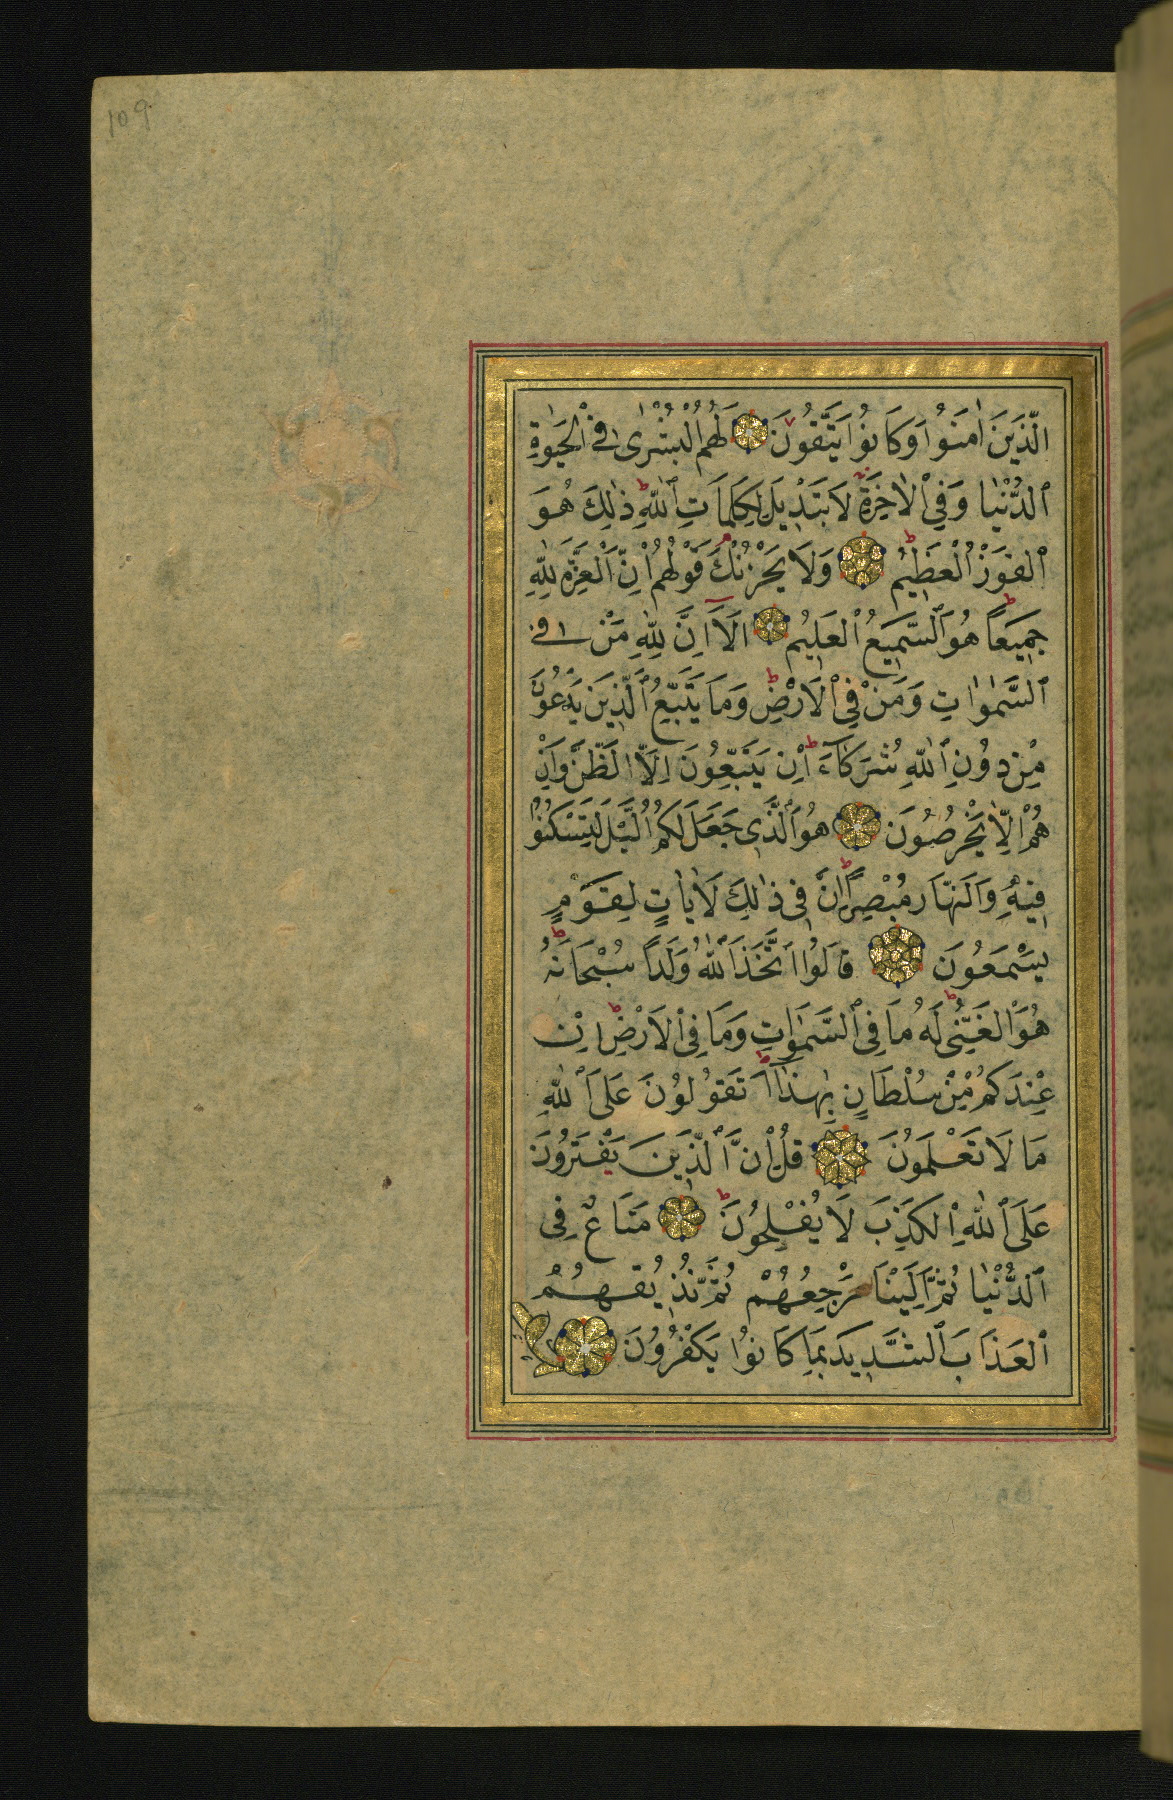 109
الَّذِينَ اٰمَنُوا وَكَانُوا يَتَّقُونَ لَهُمُ الْبُشْرٰى فِي الْحَيٰوةِ
الدُّنْيَا وَفِي الْاٰخِرَةِ لَا تَبْدِيلَ لِكَلِمَاتِ اللّٰهِ ذٰلِكَ هُوَ
الْفَوْزُ الْعَظِيمُ وَلَا يَحْزُنْكَ قَوْلُهُمْ اِنَّ الْعِزَّةَ لِلّٰهِ
جَمِيعًا هُوَ السَّمِيعُ الْعَلِيمُ اَلَا اِنَّ لِلّٰهِ مَنْ فِي
السَّمٰوَاتِ وَمَنْ فِي الْاَرْضِ وَمَا يَتَّبِعُ الَّذِينَ يَدْعُونَ
مِنْ دُونِ اللّٰهِ شُرَكَاءَ اِنْ يَتَّبِعُونَ اِلَّا الظَّنَّ وَاِنْ
هُمْ اِلَّا يَخْرُصُونَ هُوَ الَّذِي جَعَلَ لَكُمُ الَّيْلَ لِتَسْكُنُوا
فِيهِ وَالنَّهَارَ مُبْصِرًا اِنَّ فِي ذٰلِكَ لَاٰيَاتٍ لِقَوْمٍ
يَسْمَعُونَ قَالُوا اتَّخَذَ اللّٰهُ وَلَدًا سُبْحَانَهُ
هُوَ الْغَنِيُّ لَهُ مَا فِي السَّمٰوَاتِ وَمَا فِي الْاَرْضِ اِنْ
عِنْدَكُمْ مِنْ سُلْطَانٍ بِهٰذَا اَتَقُولُونَ عَلَى اللّٰهِ
مَا لَا تَعْلَمُونَ قُلْ اِنَّ الَّذِينَ يَفْتَرُونَ
عَلَى اللّٰهِ الْكَذِبَ لَا يُفْلِحُونَ مَتَاعٌ فِي
الدُّنْيَا ثُمَّ اِلَيْنَا مَرْجِعُهُمْ ثُمَّ نُذِيقُهُمُ
الْعَذَابَ الشَّدِيدَ بِمَا كَانُوا يَكْفُرُونَ